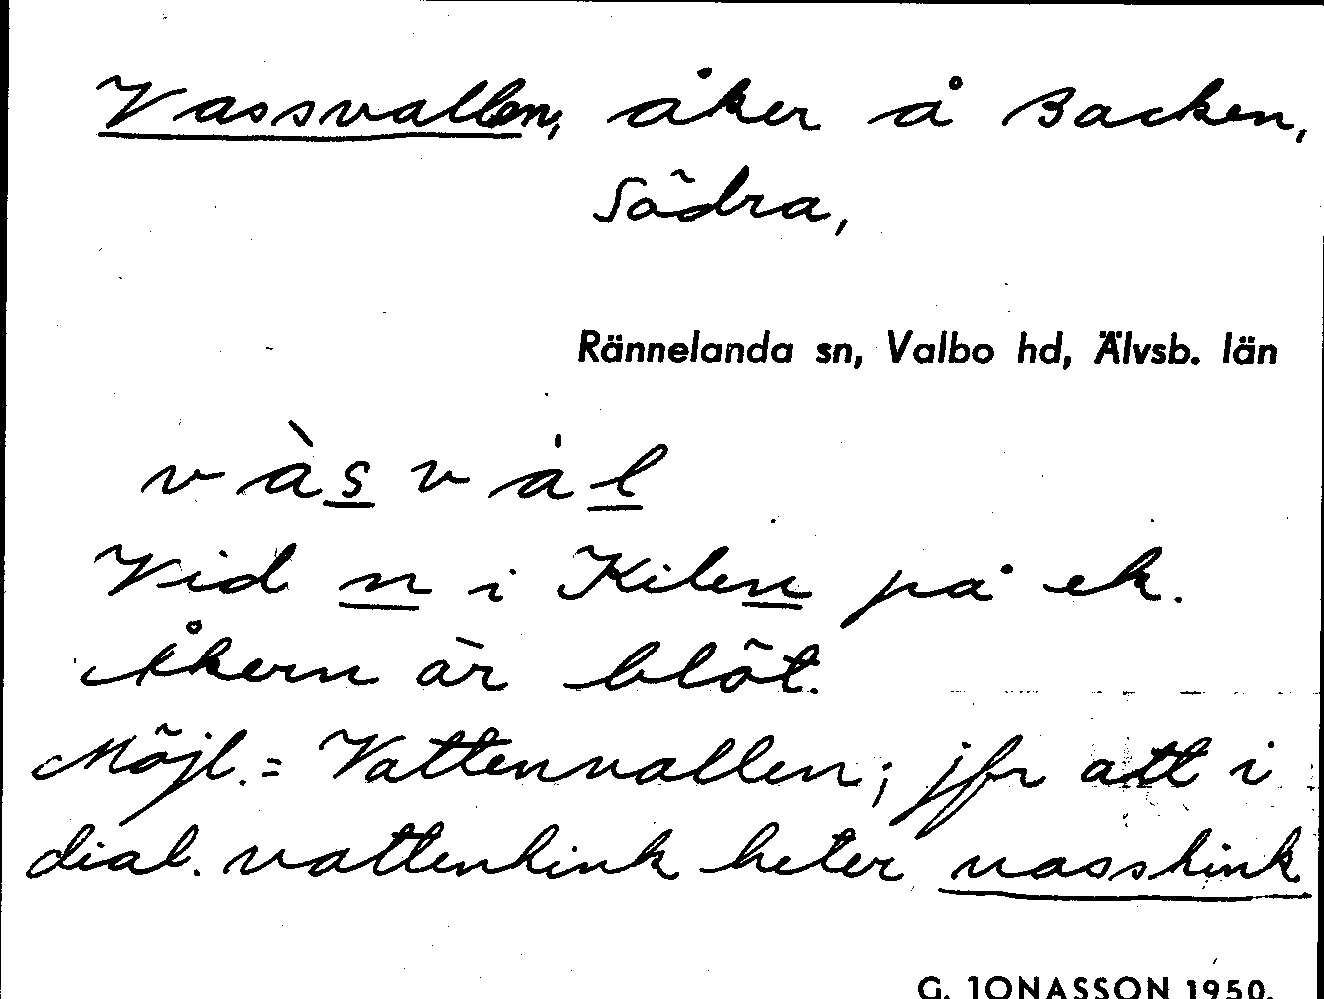 Vassvallen, åker å Backen,
Södra,
Rännelanda sn, Valbo hd, Älvsb. län
vàs vàl
Vid n i Kilen på ek.
Åkern är blöt.
Möjl. = Vattenvallen; jfr att i
dial. vattenhink heter vasshink
G. JONASSON 1950.